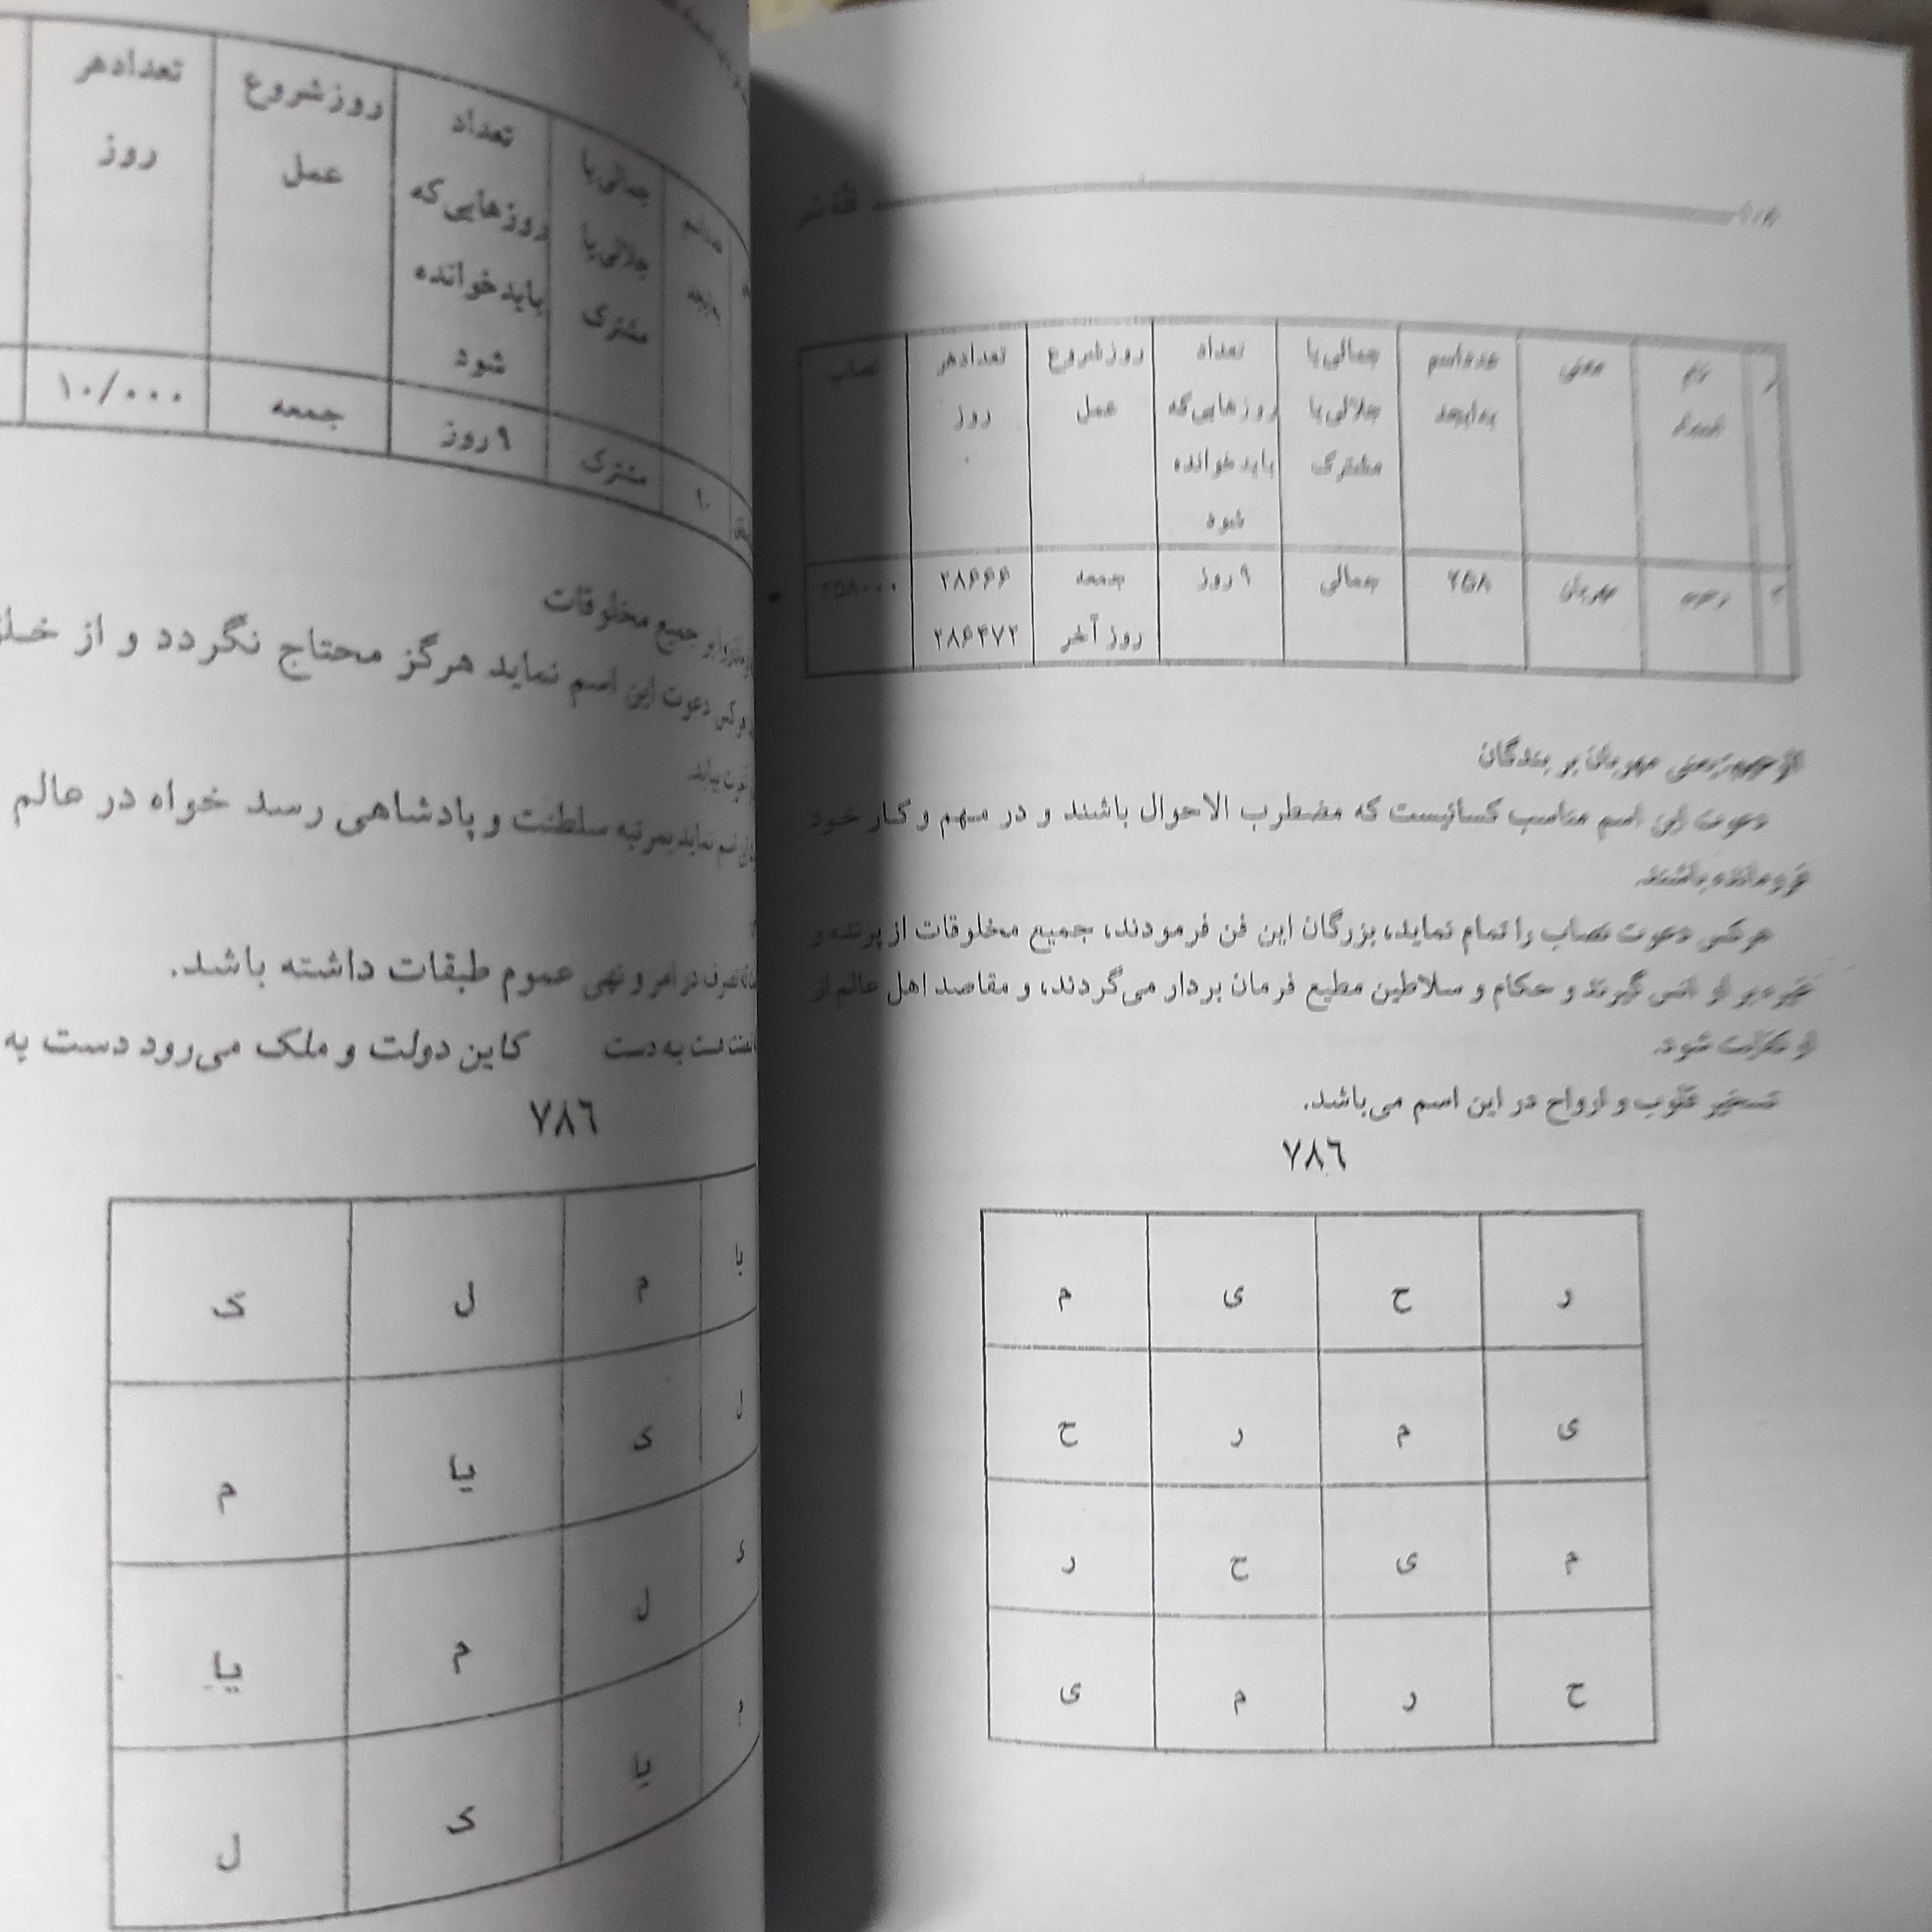 تعداد هر روز
روز شروع عمل
تعداد روزهایی که باید خوانده شود
جمالی یا جلالی یا مشترک
۱۰/۰۰۰
جمعه
۹ روز
مشترک
بر جمیع مخلوقات
دعوت این اسم نماید هرگز محتاج نگردد و از
اسم نماید بمرتبه سلطنت و پادشاهی رسد خواه در عالم
تصرف در امر و نهی عموم طبقات داشته باشد.
دست به دست کاین دولت و ملک می‌رود دست به
٧٨٦
یا م ل ک
ل ک یا م
ک ل م یا
یا ک ل
عدد اسم به ابجد
جمالی یا جلالی یا مشترک
تعداد روزهایی که باید خوانده شود
روز شروع عمل
تعداد هر روز
نصاب
معنی
۲۵۸
جمالی
۹ روز
جمعه
۲۸۶۶۶
۲۵۸۰۰۰
روز آخر
۲۸۶۴۷۲
مهربان بر بندگان
دعوت این اسم مناسب کسانیست که مضطرب الاحوال باشند و در مهم و کار خود
فرومانده باشند.
هرکس دعوت نصاب را تمام نماید، بزرگان این فن فرمودند، جمیع مخلوقات از پرنده و
او انس گیرند و حکام و سلاطین مطیع فرمان بردار می‌گردند، و مقاصد اهل عالم از
او شود.
تسخیر قلوب و ارواح در این اسم می‌باشد.
٧٨٦
ر ح ی م
ی م ر ح
م ی ح ر
ح ر م ی